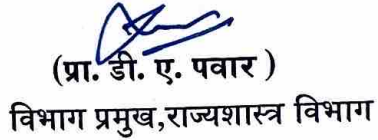 (प्रा. डी. ए. पवार )
विभाग प्रमुख,राज्यशास्त्र विभाग